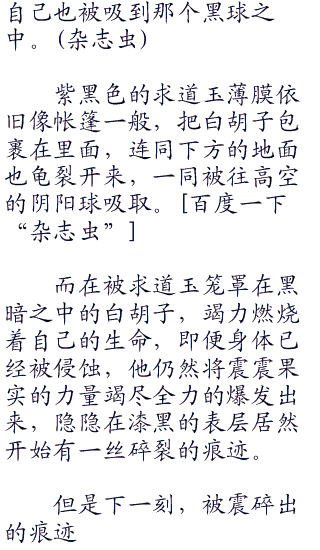 自己也被吸到那个黑球之
中。(杂志虫)
紫黑色的求道玉薄膜依
旧像帐篷一般，把白胡子包
裹在里面，连同下方的地面
也龟裂开来，一同被往高空
的阴阳球吸取。[百度一下
“杂志虫”]
而在被求道玉笼罩在黑
暗之中的白胡子，竭力燃烧
着自己的生命，即便身体已
经被侵蚀，他仍然将震震果
实的力量竭尽全力的爆发出
来，隐隐在漆黑的表层居然
开始有一丝碎裂的痕迹。
但是下一刻，被震碎出
的痕迹